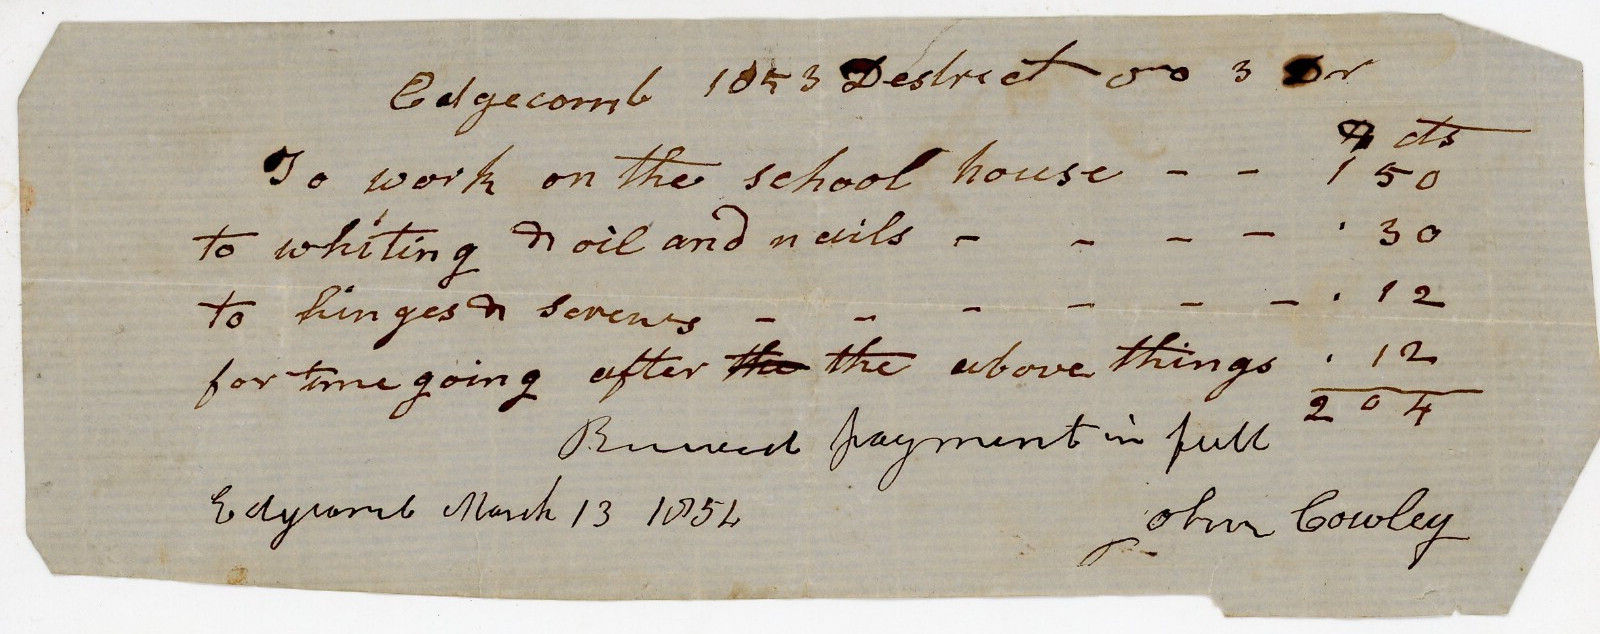 Edgecomb 1853 Destrict no 3 Dr
$ cts
To work on the school house - - 1 50
to whiting & oil and nails - - - - . 30
to hinges & screws - - - - - - . 12
for time going after the the above things . 12
2 04
Received payment in full
Edgecomb March 13 1854
John Cowley